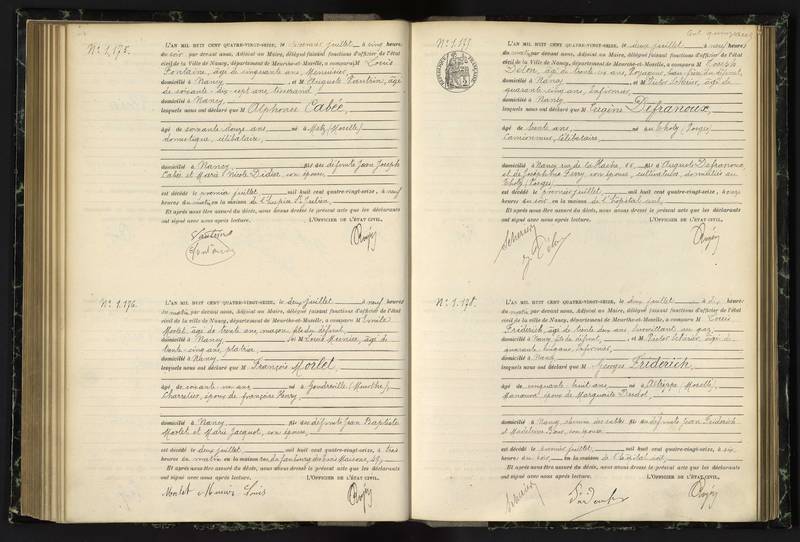 N° 1.175.
L'AN MIL HUIT CENT QUATRE-VINGT-SEIZE, le premier juillet à cinq heures
du soir par devant nous, Adjoint au Maire, délégué faisant fonctions d'officier de l'état
civil de la Ville de Nancy, département de Meurthe-et-Moselle, a comparu M Louis
Fontaine, âgé de cinquante ans, Menuisier,
domicilié à Nancy et M Auguste Vautrin, âgé
de soixante dix-sept ans, tisserand
domicilié à Nancy
lesquels nous ont déclaré que M Alphonse Cabée,
âgé de soixante douze ans né à Metz (Moselle)
domestique, célibataire,
domicilié à Nancy fils des défunts Jean Joseph
Cabée et Marie Nicole Didier, son épouse,
est décédé le premier juillet mil huit cent quatre-vingt-seize, à neuf
heures du matin en la maison de l'hospice St Julien
Et après nous être assuré du décès, nous avons dressé le présent acte que les déclarants
ont signé avec nous après lecture. L'OFFICIER DE L'ÉTAT CIVIL,
Vautrin
Fontaine
N° 1.176.
L'AN MIL HUIT CENT QUATRE-VINGT-SEIZE, le deux juillet à neuf heures
du matin par devant nous, Adjoint au Maire, délégué faisant fonctions d'officier de l'état
civil de la ville de Nancy, département de Meurthe-et-Moselle, a comparu M Emile
Morlet, âgé de trente ans, maçon, fils du défunt,
domicilié à Nancy et M Louis Meunier, âgé de
trente cinq ans, platrier,
domicilié à Nancy
lesquels nous ont déclaré que M François Morlet
âgé de soixante un ans né à Gondreville (Meurthe),
Charretier, époux de françoise Henry,
domicilié à Nancy fils des défunts Jean Baptiste
Morlet et Marie Jacquot, son épouse,
est décédé le deux juillet mil huit cent quatre-vingt-seize, à trois
heures du matin en la maison rue du faubourg des trois Maisons,
Et après nous être assuré du décès, nous avons dressé le présent acte que les déclarants
ont signé avec nous après lecture. L'OFFICIER DE L'ÉTAT CIVIL,
Morlet Meunier Louis
N° 1.177
L'AN MIL HUIT CENT QUATRE-VINGT-SEIZE, le deux juillet à neuf heures
du matin par devant nous, Adjoint au Maire, délégué faisant fonctions d'officier de l'état
civil de la Ville de Nancy, département de Meurthe-et-Moselle, a comparu M Joseph
âgé de trente six ans, beau-frère du défunt,
domicilié à Nancy et M Victor Scherier, âgé de
quarante cinq ans, Infirmier,
domicilié à Nancy
lesquels nous ont déclaré que M Eugène Defranoux,
âgé de trente ans né au Tholy (Vosges)
Camionneur, Célibataire
domicilié à Nancy, rue de la fils de Auguste Defranoux,
et de Joséphine Ferry, son épouse, cultivateurs, domiciliés au
Tholy (Vosges)
est décédé le premier juillet mil huit cent quatre-vingt-seize, à onze
heures du soir en la maison de l'hôpital civil
Et après nous être assuré du décès, nous avons dressé le présent acte que les déclarants
ont signé avec nous après lecture. L'OFFICIER DE L'ÉTAT CIVIL,
N° 1.178.
L'AN MIL HUIT CENT QUATRE-VINGT-SEIZE, le deux juillet à dix heures
du matin par devant nous, Adjoint au Maire, délégué faisant fonctions d'officier de l'état
civil de la ville de Nancy, département de Meurthe-et-Moselle, a comparu M Louis
Friderich, âgé de trente deux ans, surveillant au gaz,
domicilié à Nancy fils du défunt, et M Victor Scherier, âgé de
quarante cinq ans, Infirmier
domicilié à Nancy
lesquels nous ont déclaré que M Georges Friderich
âgé de cinquante huit ans né à (Moselle),
Manœuvre époux de Marguerite
domicilié à Nancy, chemin des fils des défunts Jean Friderich
et Madeleine son épouse
est décédé le premier juillet, mil huit cent quatre-vingt-seize, à six
heures du soir, en la maison de l'hôpital civil,
Et après nous être assuré du décès, nous avons dressé le présent acte que les déclarants
ont signé avec nous après lecture. L'OFFICIER DE L'ÉTAT CIVIL,